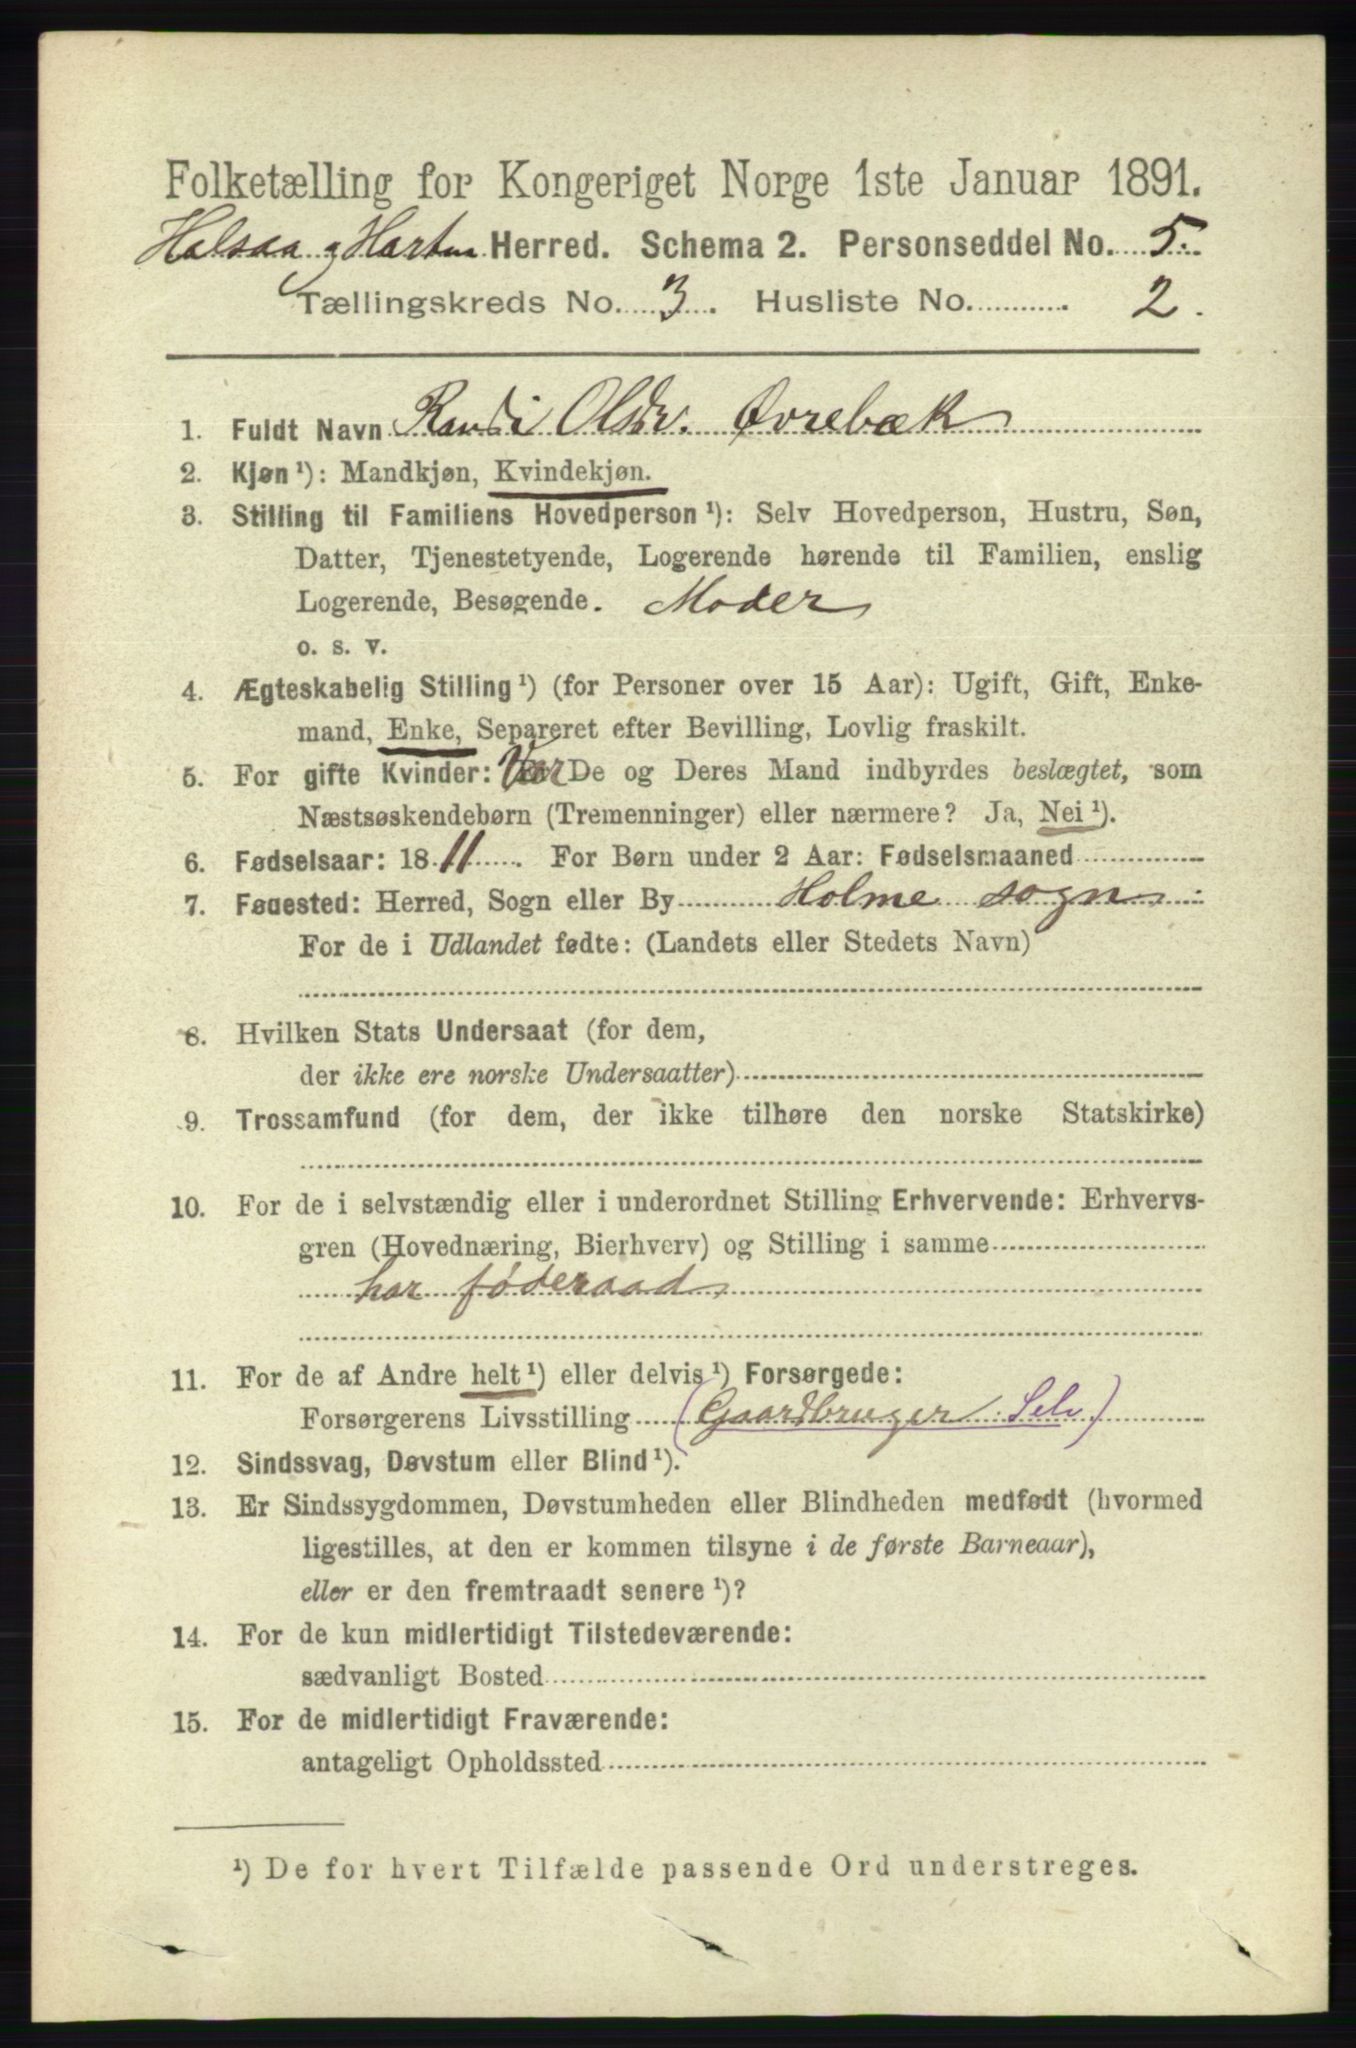 Folketælling for Kongeriget Norge 1ste Januar 1891.
Halsaa og Hartm Herred. Schema 2. Personseddel No. 5.
Tællingskreds No. 3. Husliste No. 2.
1. Fuldt Navn Randi Olsdr. Øvrebæk
2. Kjøn¹): Mandkjøn, Kvindekjøn.
3. Stilling til Familiens Hovedperson¹): Selv Hovedperson, Hustru, Søn,
Datter, Tjenestetyende, Logerende hørende til Familien, enslig
Logerende, Besøgende. Moder
o. s. v.
4. Ægteskabelig Stilling¹) (for Personer over 15 Aar): Ugift, Gift, Enke-
mand, Enke, Separeret efter Bevilling, Lovlig fraskilt.
5. For gifte Kvinder: Var De og Deres Mand indbyrdes beslægtet, som
Næstsøskendebørn (Tremenninger) eller nærmere? Ja, Nei¹).
6. Fødselsaar: 1811. For Børn under 2 Aar: Fødselsmaaned
7. Fødested: Herred, Sogn eller By Holme sogn
For de i Udlandet fødte: (Landets eller Stedets Navn)
8. Hvilken Stats Undersaat (for dem,
der ikke ere norske Undersaatter)
9. Trossamfund (for dem, der ikke tilhøre den norske Statskirke)
10. For de i selvstændig eller i underordnet Stilling Erhvervende: Erhvervs-
gren (Hovednæring, Bierhverv) og Stilling i samme
har føderaad
11. For de af Andre helt¹) eller delvis¹) Forsørgede:
Forsørgerens Livsstilling (Gaardbruger Selv)
12. Sindssvag, Døvstum eller Blind¹).
13. Er Sindssygdommen, Døvstumheden eller Blindheden medfødt (hvormed
ligestilles, at den er kommen tilsyne i de første Barneaar),
eller er den fremtraadt senere¹)?
14. For de kun midlertidigt Tilstedeværende:
sædvanligt Bosted
15. For de midlertidigt Fraværende:
antageligt Opholdssted
¹) De for hvert Tilfælde passende Ord understreges.